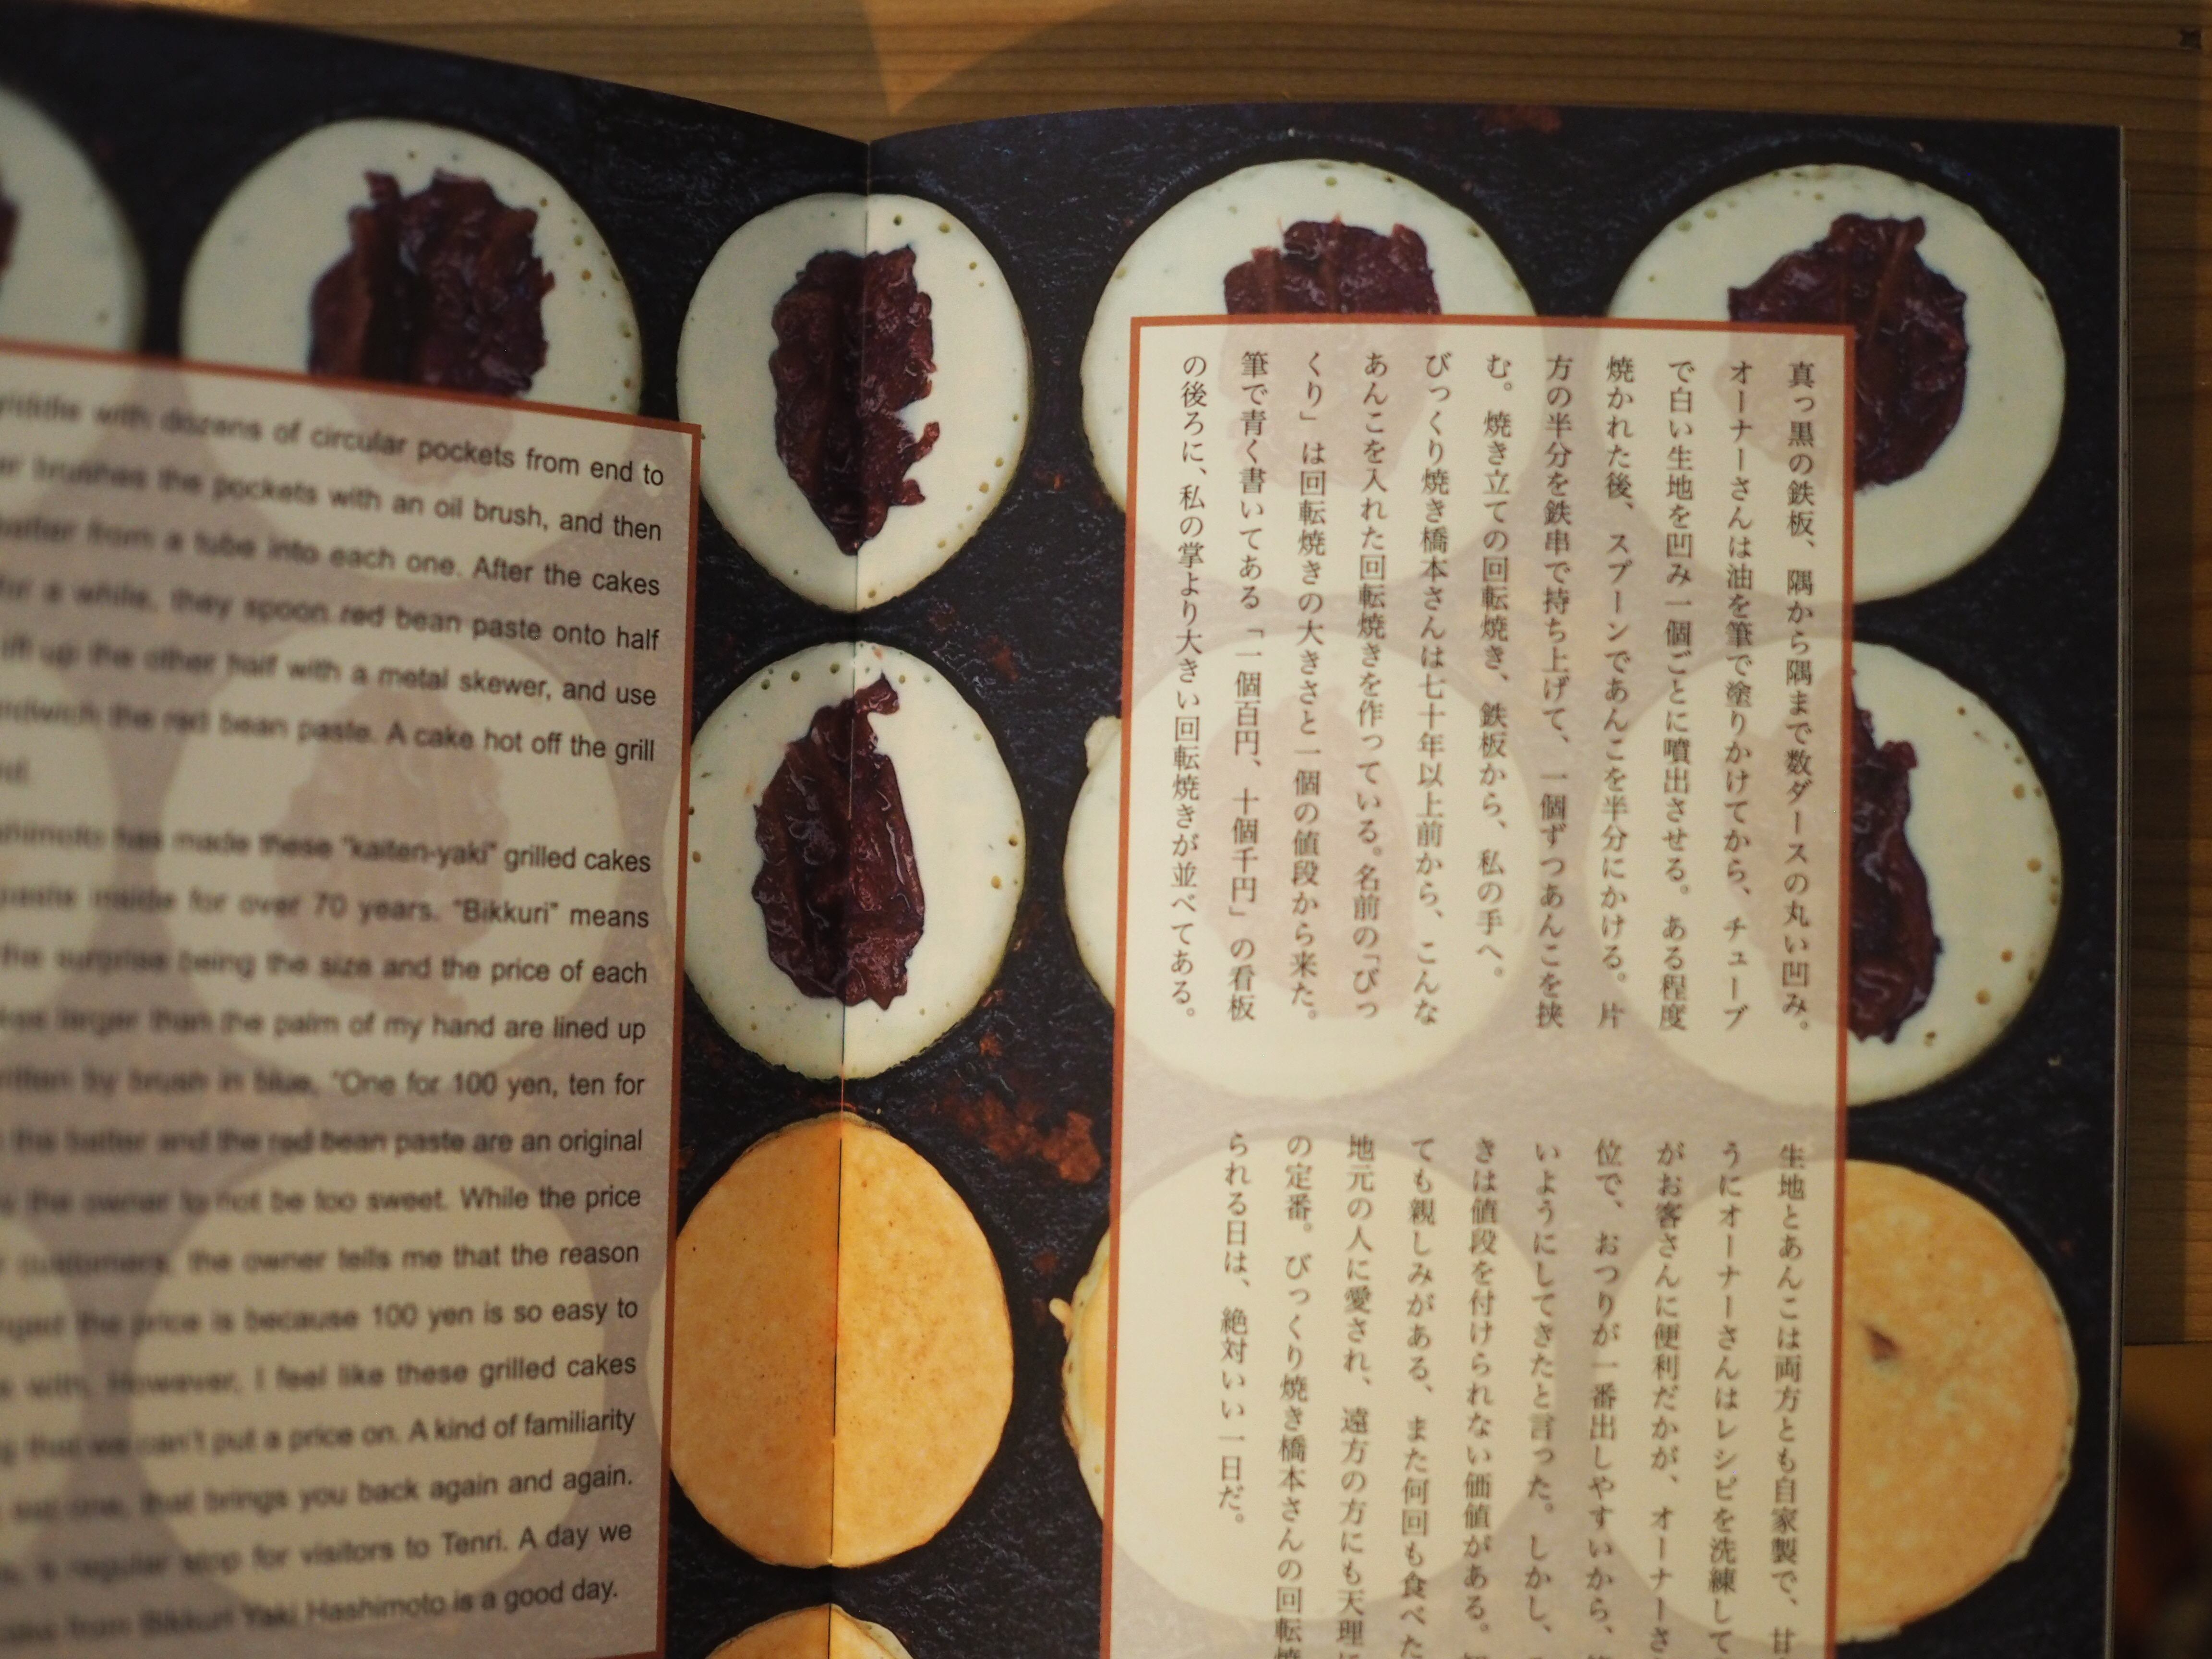 riddle with dozens of circular pockets from end to
er brushes the pockets with an oil brush, and then
batter from a tube into each one. After the cakes
for a while, they spoon red bean paste onto half
lift up the other half with a metal skewer, and use
the red bean paste. A cake hot off the grill
has made these "kaiten-yaki" grilled cakes
paste inside for over 70 years. "Bikkuri" means
the surprise being the size and the price of each
larger than the palm of my hand are lined up
by brush in blue, "One for 100 yen, ten for
the batter and the red bean paste are an original
the owner to not be too sweet. While the price
customers, the owner tells me that the reason
the price is because 100 yen is so easy to
with. However, I feel like these grilled cakes
that we can't put a price on. A kind of familiarity
that brings you back again and again.
a regular stop for visitors to Tenri. A day we
from Bikkuri Yaki Hashimoto is a good day.
真っ黒の鉄板、隅から隅まで数ダースの丸い凹み。
オーナーさんは油を筆で塗りかけてから、チューブ
で白い生地を凹み一個ごとに噴出させる。ある程度
焼かれた後、スプーンであんこを半分にかける。片
方の半分を鉄串で持ち上げて、一個ずつあんこを挟
む。焼き立ての回転焼き、鉄板から、私の手へ。
びっくり焼き橋本さんは七十年以上前から、こんな
あんこを入れた回転焼きを作っている。名前の「びっ
くり」は回転焼きの大きさと一個の値段から来た。
筆で青く書いてある「一個百円、十個千円」の看板
の後ろに、私の掌より大きい回転焼きが並べてある。
生地とあんこは両方とも自家製で、甘
うにオーナーさんはレシピを洗練して
がお客さんに便利だかが、オーナーさ
位で、おつりが一番出しやすいから、
いようにしてきたと言った。しかし、
きは値段を付けられない価値がある。
ても親しみがある、また何回も食べた
地元の人に愛され、遠方の方にも天理
の定番。びっくり焼き橋本さんの回転焼
られる日は、絶対いい一日だ。